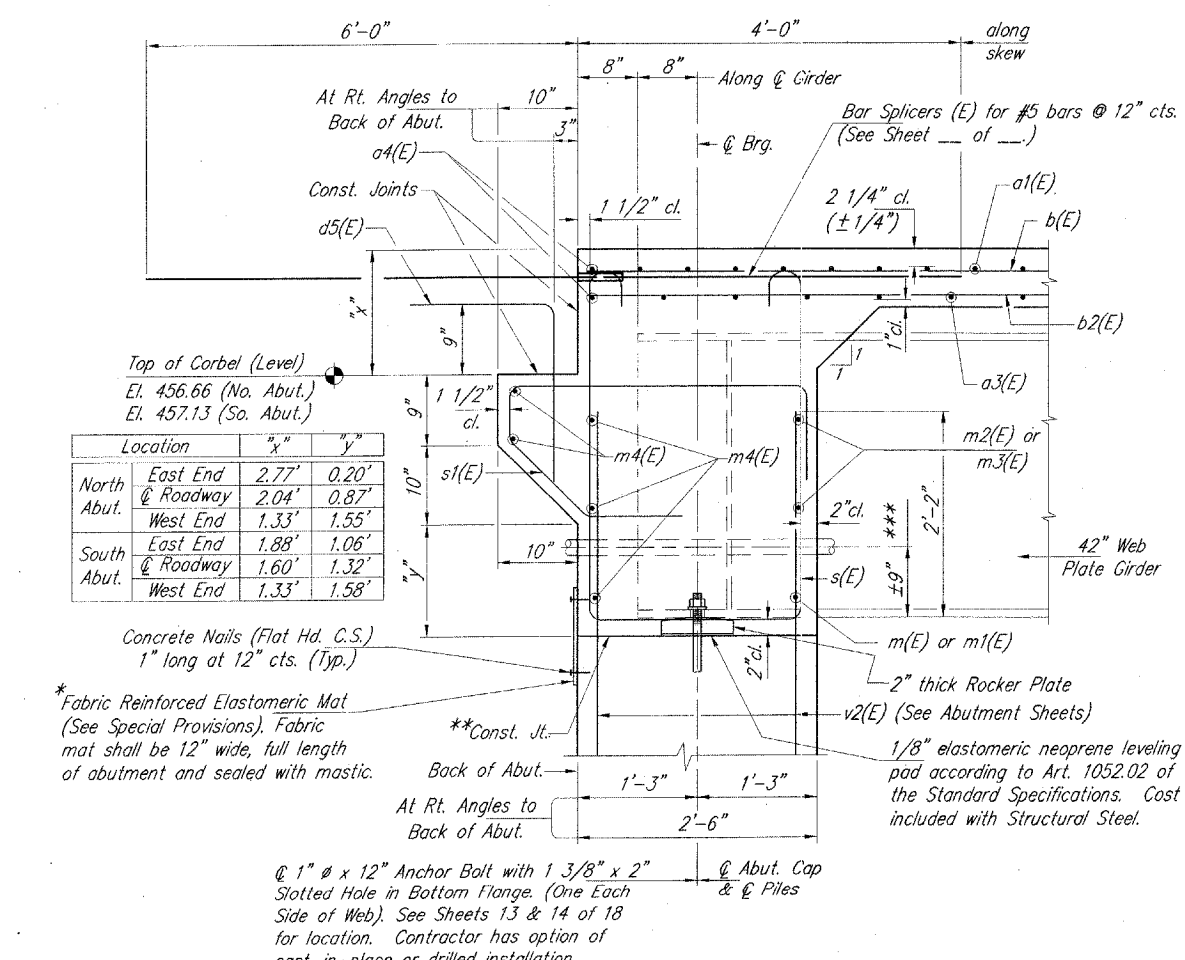 6'-0"
4'-0"
along
skew
8"
8"
Along ℄ Girder
10"
At Rt. Angles to
Back of Abut.
3"
Bar Splicers (E) for #5 bars @ 12" cts.
(See Sheet __ of __.)
℄ Brg.
a4(E)
Const. Joints
1 1/2" cl.
2 1/4" cl.
(±1/4")
a1(E)
b(E)
d5(E)
"x"
9"
1" cl.
b2(E)
1
1
a3(E)
Top of Corbel (Level)
El. 456.66 (No. Abut.)
El. 457.13 (So. Abut.)
9"
1 1/2"
cl.
Location "x" "y"
North Abut. East End 2.77' 0.20'
℄ Roadway 2.04' 0.87'
West End 1.33' 1.55'
South Abut. East End 1.88' 1.06'
℄ Roadway 1.60' 1.32'
West End 1.33' 1.58'
m4(E)
m4(E)
m2(E) or
m3(E)
s1(E)
10"
2" cl.
***
2'-2"
10"
42" Web
Plate Girder
"y"
s(E)
±9"
Concrete Nails (Flat Hd. C.S.)
1" long at 12" cts. (Typ.)
m(E) or m1(E)
2" cl.
2" thick Rocker Plate
*Fabric Reinforced Elastomeric Mat
(See Special Provisions). Fabric
mat shall be 12" wide, full length
of abutment and sealed with mastic.
**Const. Jt.
v2(E) (See Abutment Sheets)
1/8" elastomeric neoprene leveling
pad according to Art. 1052.02 of
the Standard Specifications. Cost
included with Structural Steel.
Back of Abut.
1'-3"
1'-3"
At Rt. Angles to
Back of Abut.
2'-6"
℄ 1" ø x 12" Anchor Bolt with 1 3/8" x 2"
Slotted Hole in Bottom Flange. (One Each
Side of Web). See Sheets 13 & 14 of 18
for location. Contractor has option of
cast-in-place or drilled installation.
℄ Abut. Cap
& ℄ Piles